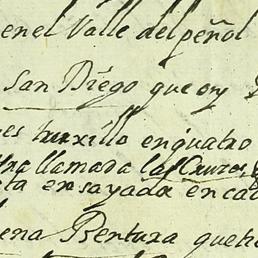 enel Valle del peñol
San Diego que oy
truxillo enquatro
llamada las Cruzes
ensayada en ca
ena Bentura que